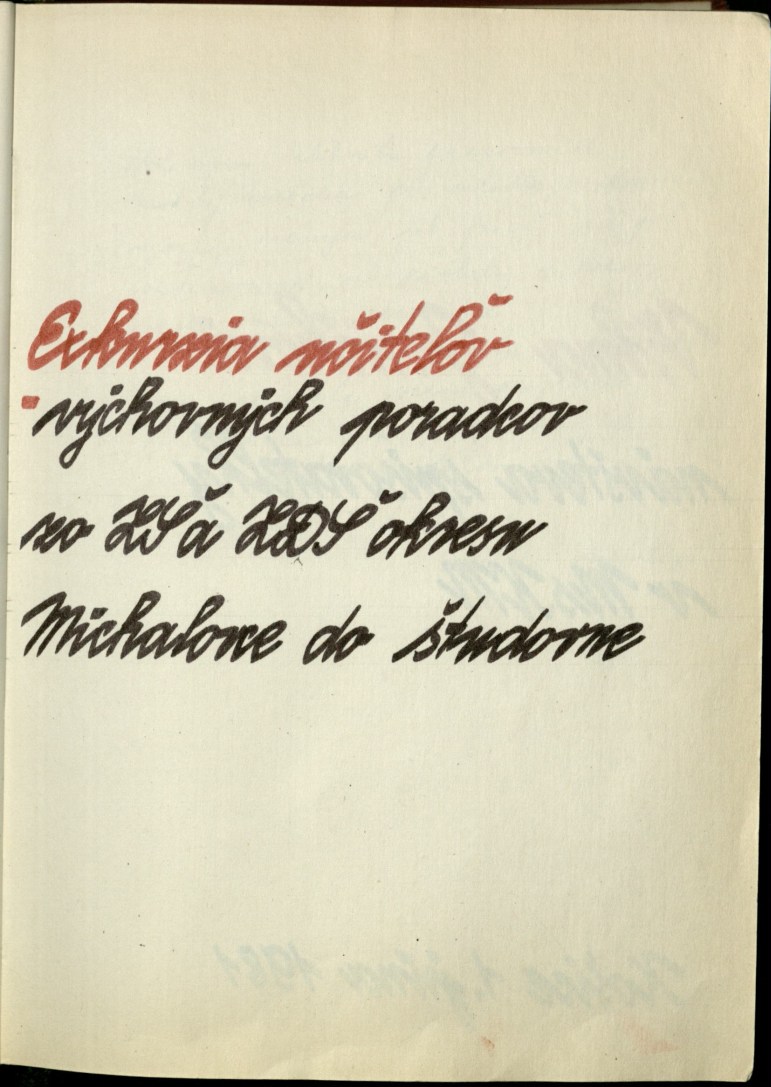 Exkurzia učiteľov
- výchovných poradcov
zo ZŠ a ZDŠ okresu
Michalovce do študovne